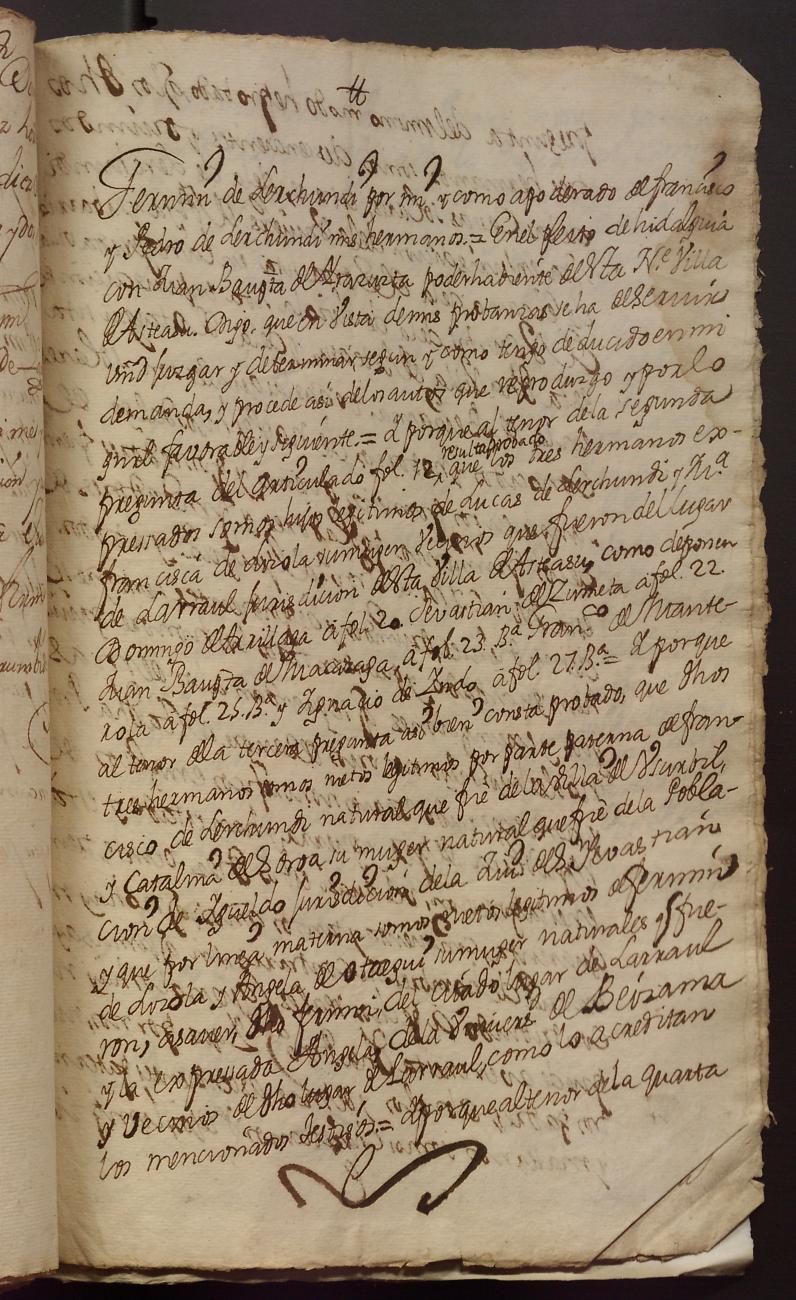 Fermin de Lerchundi por mi, y como apoderado de francisco
y Pedro de Lerchundi mis hermanos = En el pleito de hidalguia
con Juan Baupta de Arazuzta poderhabiente desta Ne. Villa
de Asteasu. Digo, que en vista de mis probanzas se ha de servir
vmd juzgar y determinar segun y como tengo deducido en mi
demanda, y procede asi de los autos que reproduzgo y por lo
gnrl favorable y siguiente = Y porque al tenor de la segunda
pregunta del articulado fol. 12, resulta probado que los tres hermanos ex-
pressados somos hijos legitimos de Lucas de Lerchundi y Ma
francisca de Loiola su muger vecinos que fueron del lugar
de Larraul jurisdicion desta Villa de Asteasu, como deponen
Domingo de a fol. 20. Sevastian de Zumeta a fol. 22.
Juan Baupta de Macazaga, a fol. 23. Ba Franco de Mante-
rola a fol. 25. Ba y Ignacio de Indo a fol. 27. Ba = Y porque
al tenor de la tercera pregunta asi bien consta probado, que dhos
tres hermanos somos nietos legitimos por parte paterna de fran-
cisco de Lerchundi natural que fue de la Villa de Vsurbil,
y Catalina de Eroa su muger natural que fue de la Pobla-
cion de Igueldo jurisdicion de la Ciud de Sn Sevastian
y que por linea materna somos nietos legitimos de fermin
de Loiola y Angela de Otaegui su muger naturales q fue-
ron, a saver, dho fermin, del citado lugar de Larraul
y la expressada Angela, de la Univerd de Beizama
y vecinos de dho lugar de Larraul, como lo acreditan
los mencionados testigos = Y porque al tenor de la quarta